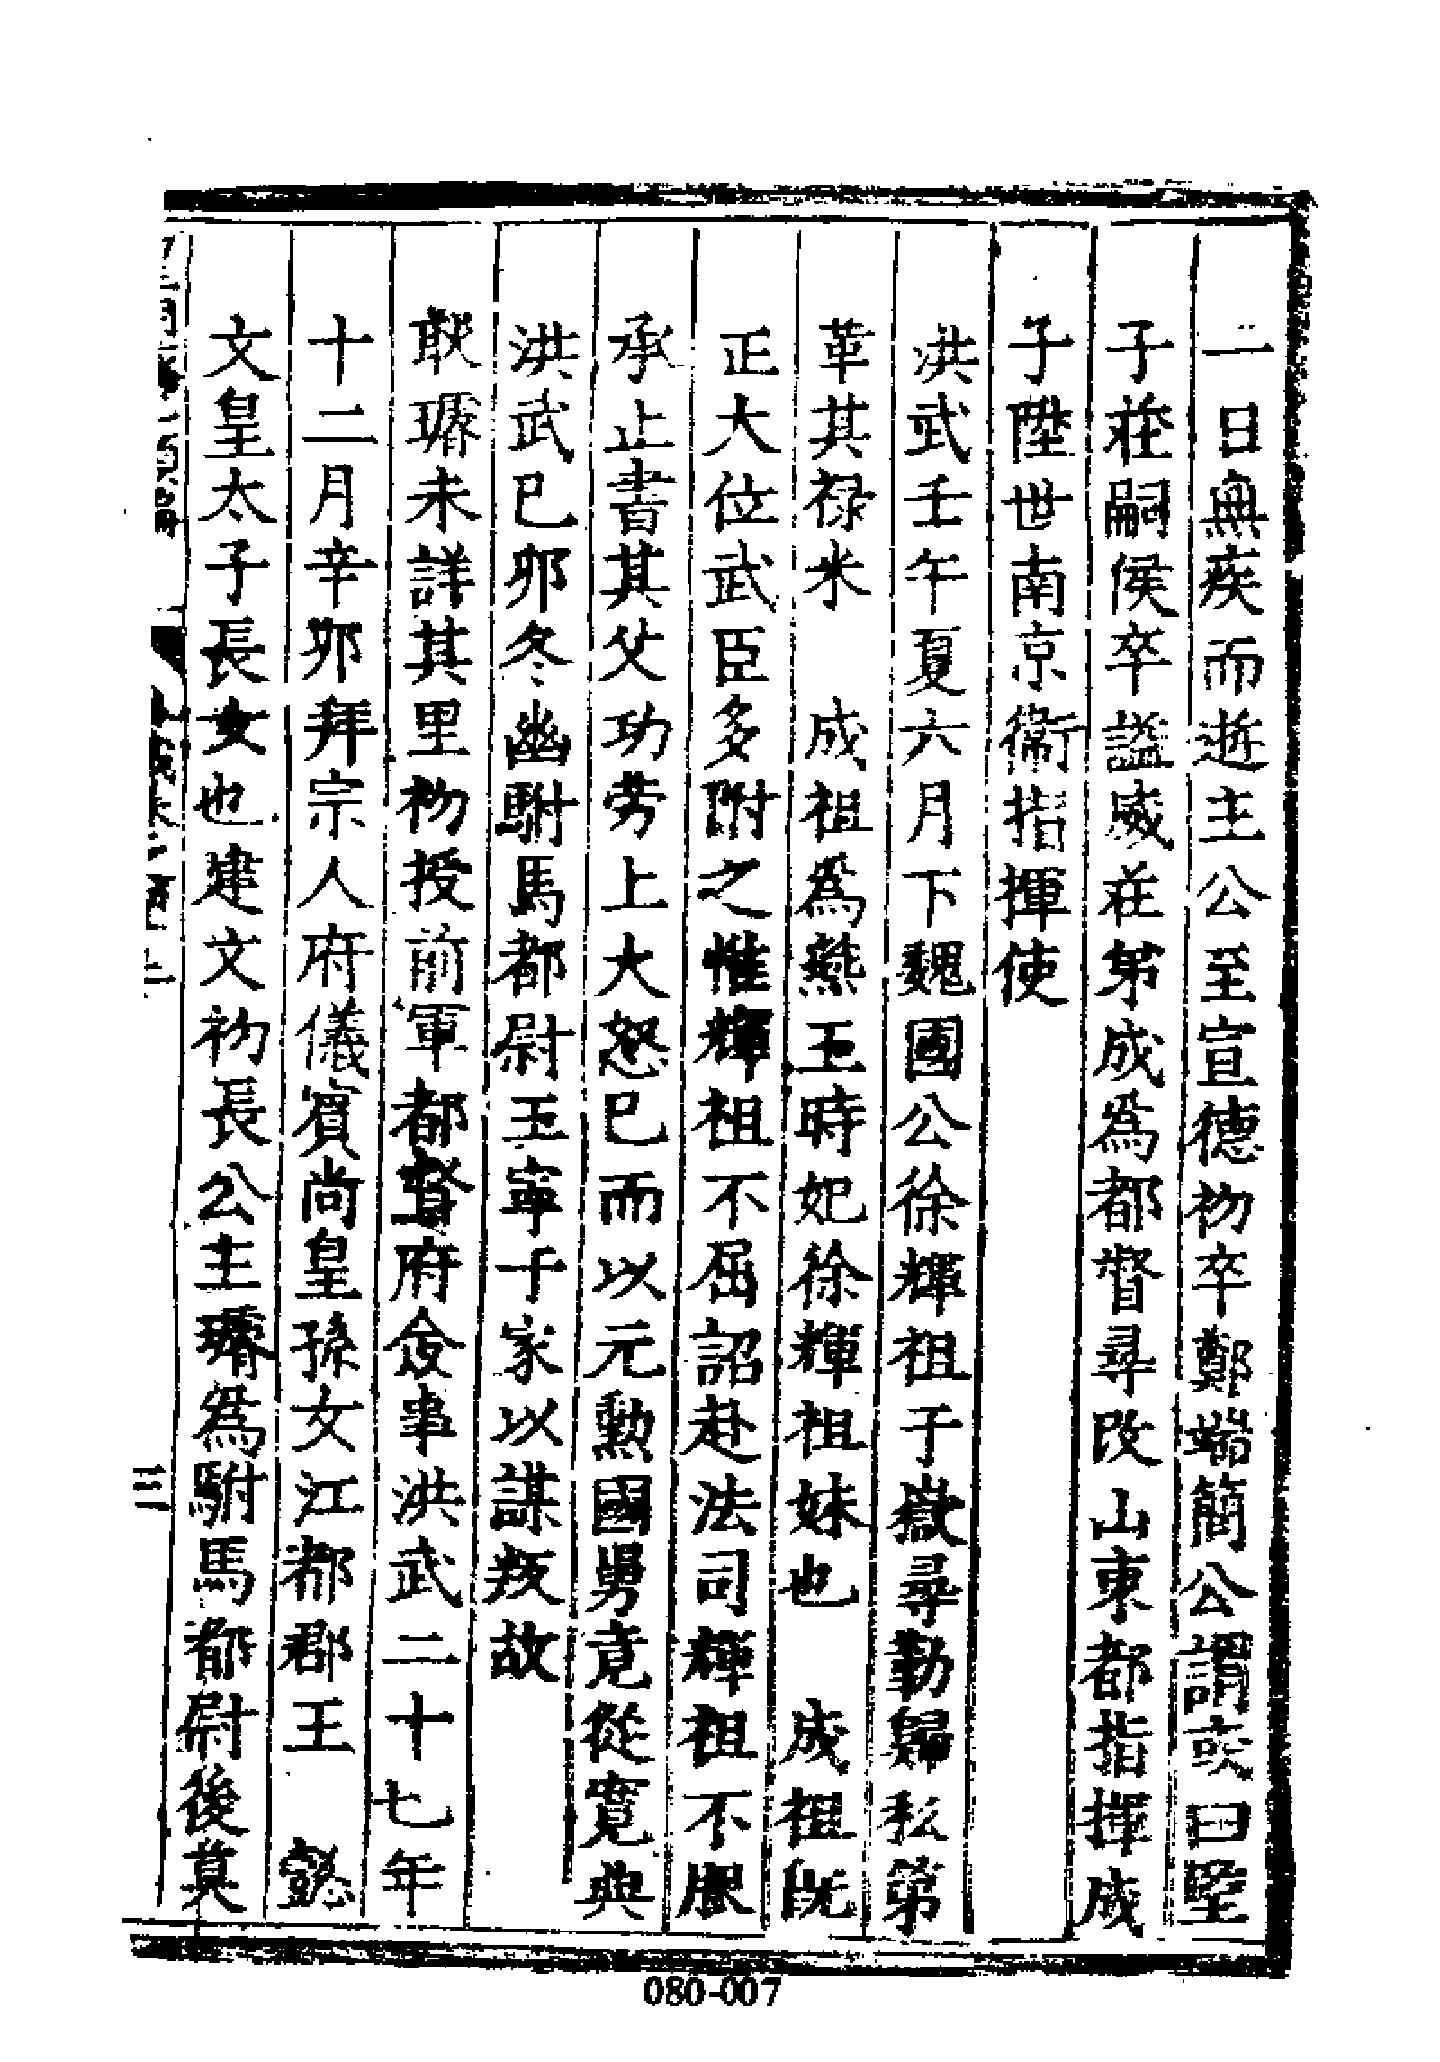 一日無疾而逝主公至宣德初卒鄭端簡公謂或曰墅
子莊嗣侯卒謚威莊弟成為都督尋改山東都指揮成
子陞世南京衞指揮使
洪武壬午夏六月下魏國公徐輝祖于嶽尋勒歸私第
革其祿米　成祖為燕王時妃徐輝祖妹也　成祖既
正大位武臣多附之惟輝祖不屈詔赴法司輝祖不服
承止書其父功勞上大怒已而以元勲國舅竟從寬典
洪武巳卯冬幽駙馬都尉王寧于家以謀叛故
耿璿未詳其里初授前軍都督府僉事洪武二十七年
十二月辛卯拜宗人府儀賓尚皇孫女江都郡王　懿
文皇太子長女也建文初長公主璿為駙馬都尉後莫
三
080-007